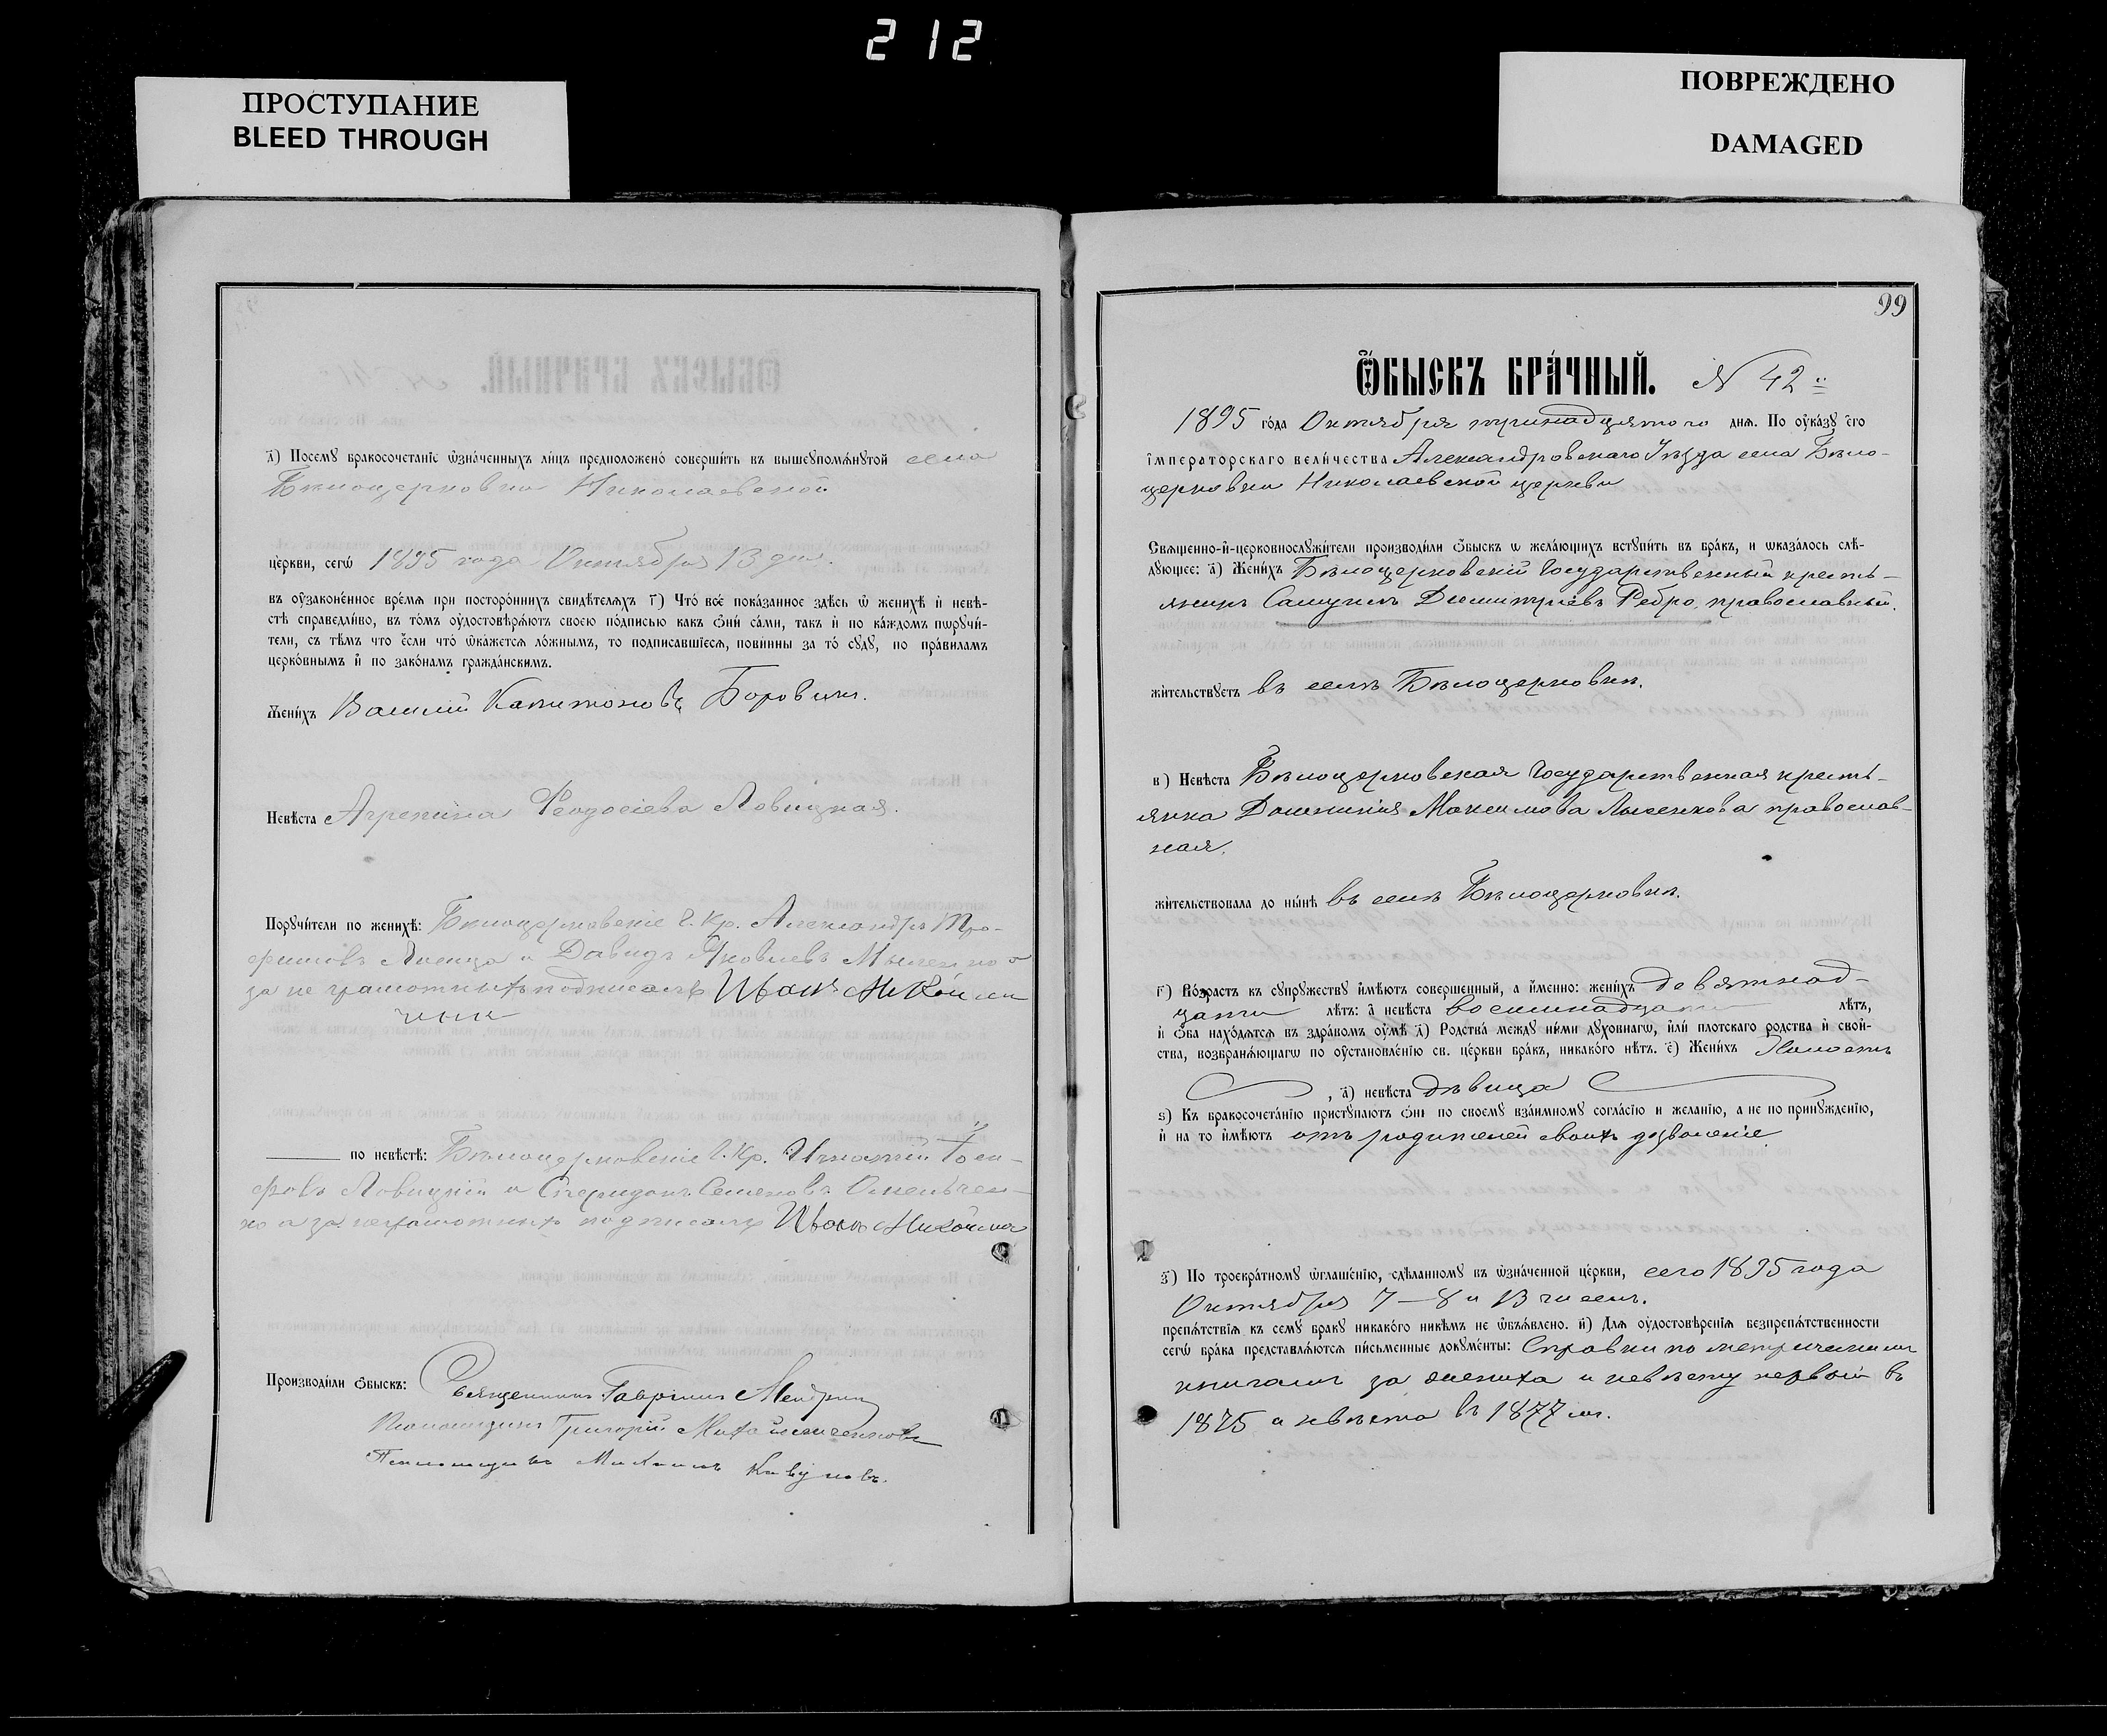 212
ПРОСТУПАНИЕ
BLEED THROUGH
ПОВРЕЖДЕНО
DAMAGED
д҃) Посемꙋ бракосочетанїе ѡзна́ченныхъ ли́цъ предположено̀ соверши́ть въ вышеꙋпомѧ́нꙋтой села
Бѣлоцерковки Николаевской
це́ркви, сегѡ̀ 1895 года Октября 13 дня.
въ оу҆зако́ненное вре́мѧ при посторо́ннихъ свидѣ́телѧхъ г҃) Что̀ всѐ пока́занное здѣ́сь ѡ҆ женихѣ̀ и҆ невѣ́-
стѣ справедли́во, въ то́мъ оу҆достовѣрѧ́ютъ своею по́дписью какъ ѻ҆нѝ са́ми, такъ и҆ по ка́ждомъ порꙋчи́-
тели, съ тѣ́мъ что е҆́сли что̀ ѡ҆ка́жетсѧ ло́жнымъ, то подписавшїесѧ, пови́нны за то̀ сꙋдꙋ, по пра́виламъ
церко́внымъ и҆ по зако́намъ гражда́нскимъ.
Жени́хъ Василий Капитоновъ Боровик.
Невѣ́ста Агрепина Феодосіева Ловицкая.
Порꙋчи́тели по женихѣ̀: Бѣлоцерковскіе Г. Кр. Александръ Тро-
фимовъ и Давидъ Яковлевъ
за не грамотныхъ подписалъ Иванъ
по невѣ́стѣ: Бѣлоцерковскіе Г. Кр. Игнатій Іоси-
фовъ Ловицкій и Спиридонъ Семеновъ Омельчен-
ко а за неграмотныхъ подписалъ Иванъ
Производи́ли ѻ҆́быскъ: Священникъ Гавріилъ
Псаломщикъ Григорій
Псаломщикъ Михаилъ
99
Ѻ҆́БЫСКЪ БРА́ЧНЫЙ. N 42
1895 го́да Октября тринадцятого днѧ. По оу҆ка́зꙋ є҆гѡ̀
і҆мпера́торскаго вели́чества Александровскаго Уѣзда села Бѣло-
церковки Николаевской церкви
Свѧще́нно-и҆-церковнослꙋжи́тели производи́ли ѻ҆́быскъ ѡ жела́ющихъ встꙋпи́ть въ бра́къ, и ѡказа́лось слѣ́-
дꙋющее: а҃) Жени́хъ Бѣлоцерковскій Государственный кресть-
янинъ Самуилъ Димитріевъ Ребро, православный.
жи́тельствꙋетъ въ селѣ Бѣлоцерковкѣ.
в҃) Невѣ́ста Бѣлоцерковская Государственная кресть-
янка Домникія Максимова Лысенкова православ-
ная.
жи́тельствовала до ны́нѣ въ селѣ Бѣлоцерковкѣ.
г҃) Во́зрастъ къ сꙋпрꙋжествꙋ и҆мѣ́ютъ соверше́нный, а и҆́менно: жени́хъ девятнад-
цати лѣ́тъ: а҆ невѣ́ста восемнадцати лѣ́тъ,
и҆ ѻ҆́ба нахо́дѧтсѧ въ здра́вомъ оу҆мѣ̀ д҃) Родства̀ междꙋ ни́ми дꙋхо́внагѡ, и҆лѝ плотскаго родства и҆ сво́й-
ства, возбранѧ́ющагѡ по оу҆становле́нїю св. це́ркви бра́къ, никако́го нѣ́тъ. е҃) Жени́хъ Холостъ
, а҃) невѣ́ста дѣвица
ѕ҃) Къ бракосочета́нїю пристꙋпа́ютъ ѻ҆нѝ по своемꙋ взаи́мномꙋ согла́сїю и жела́нїю, а не по принꙋжде́нїю,
и҆ на то и҆мѣ́ютъ отъ родителей своихъ дозволеніе.
з҃) По троекра́тномꙋ ѡ҆глаше́нїю, сдѣ́ланномꙋ въ ѡзна́ченной це́ркви, сего 1895 года
Октября 7 — 8 и 13 чиселъ.
препѧ́тствїѧ къ семꙋ̀ бра́кꙋ никако́го никѣ́мъ не ѡ҆бъѧ́влено. и҃) Длѧ оу҆достовѣ́ренїѧ безпрепѧ́тственности
сегѡ̀ бра́ка представлѧ́ютсѧ пи́сьменные докꙋме́нты: Справки по метрическимъ
книгамъ за жениха и невѣсту первый въ
1875 а невѣста въ 1877 мъ.